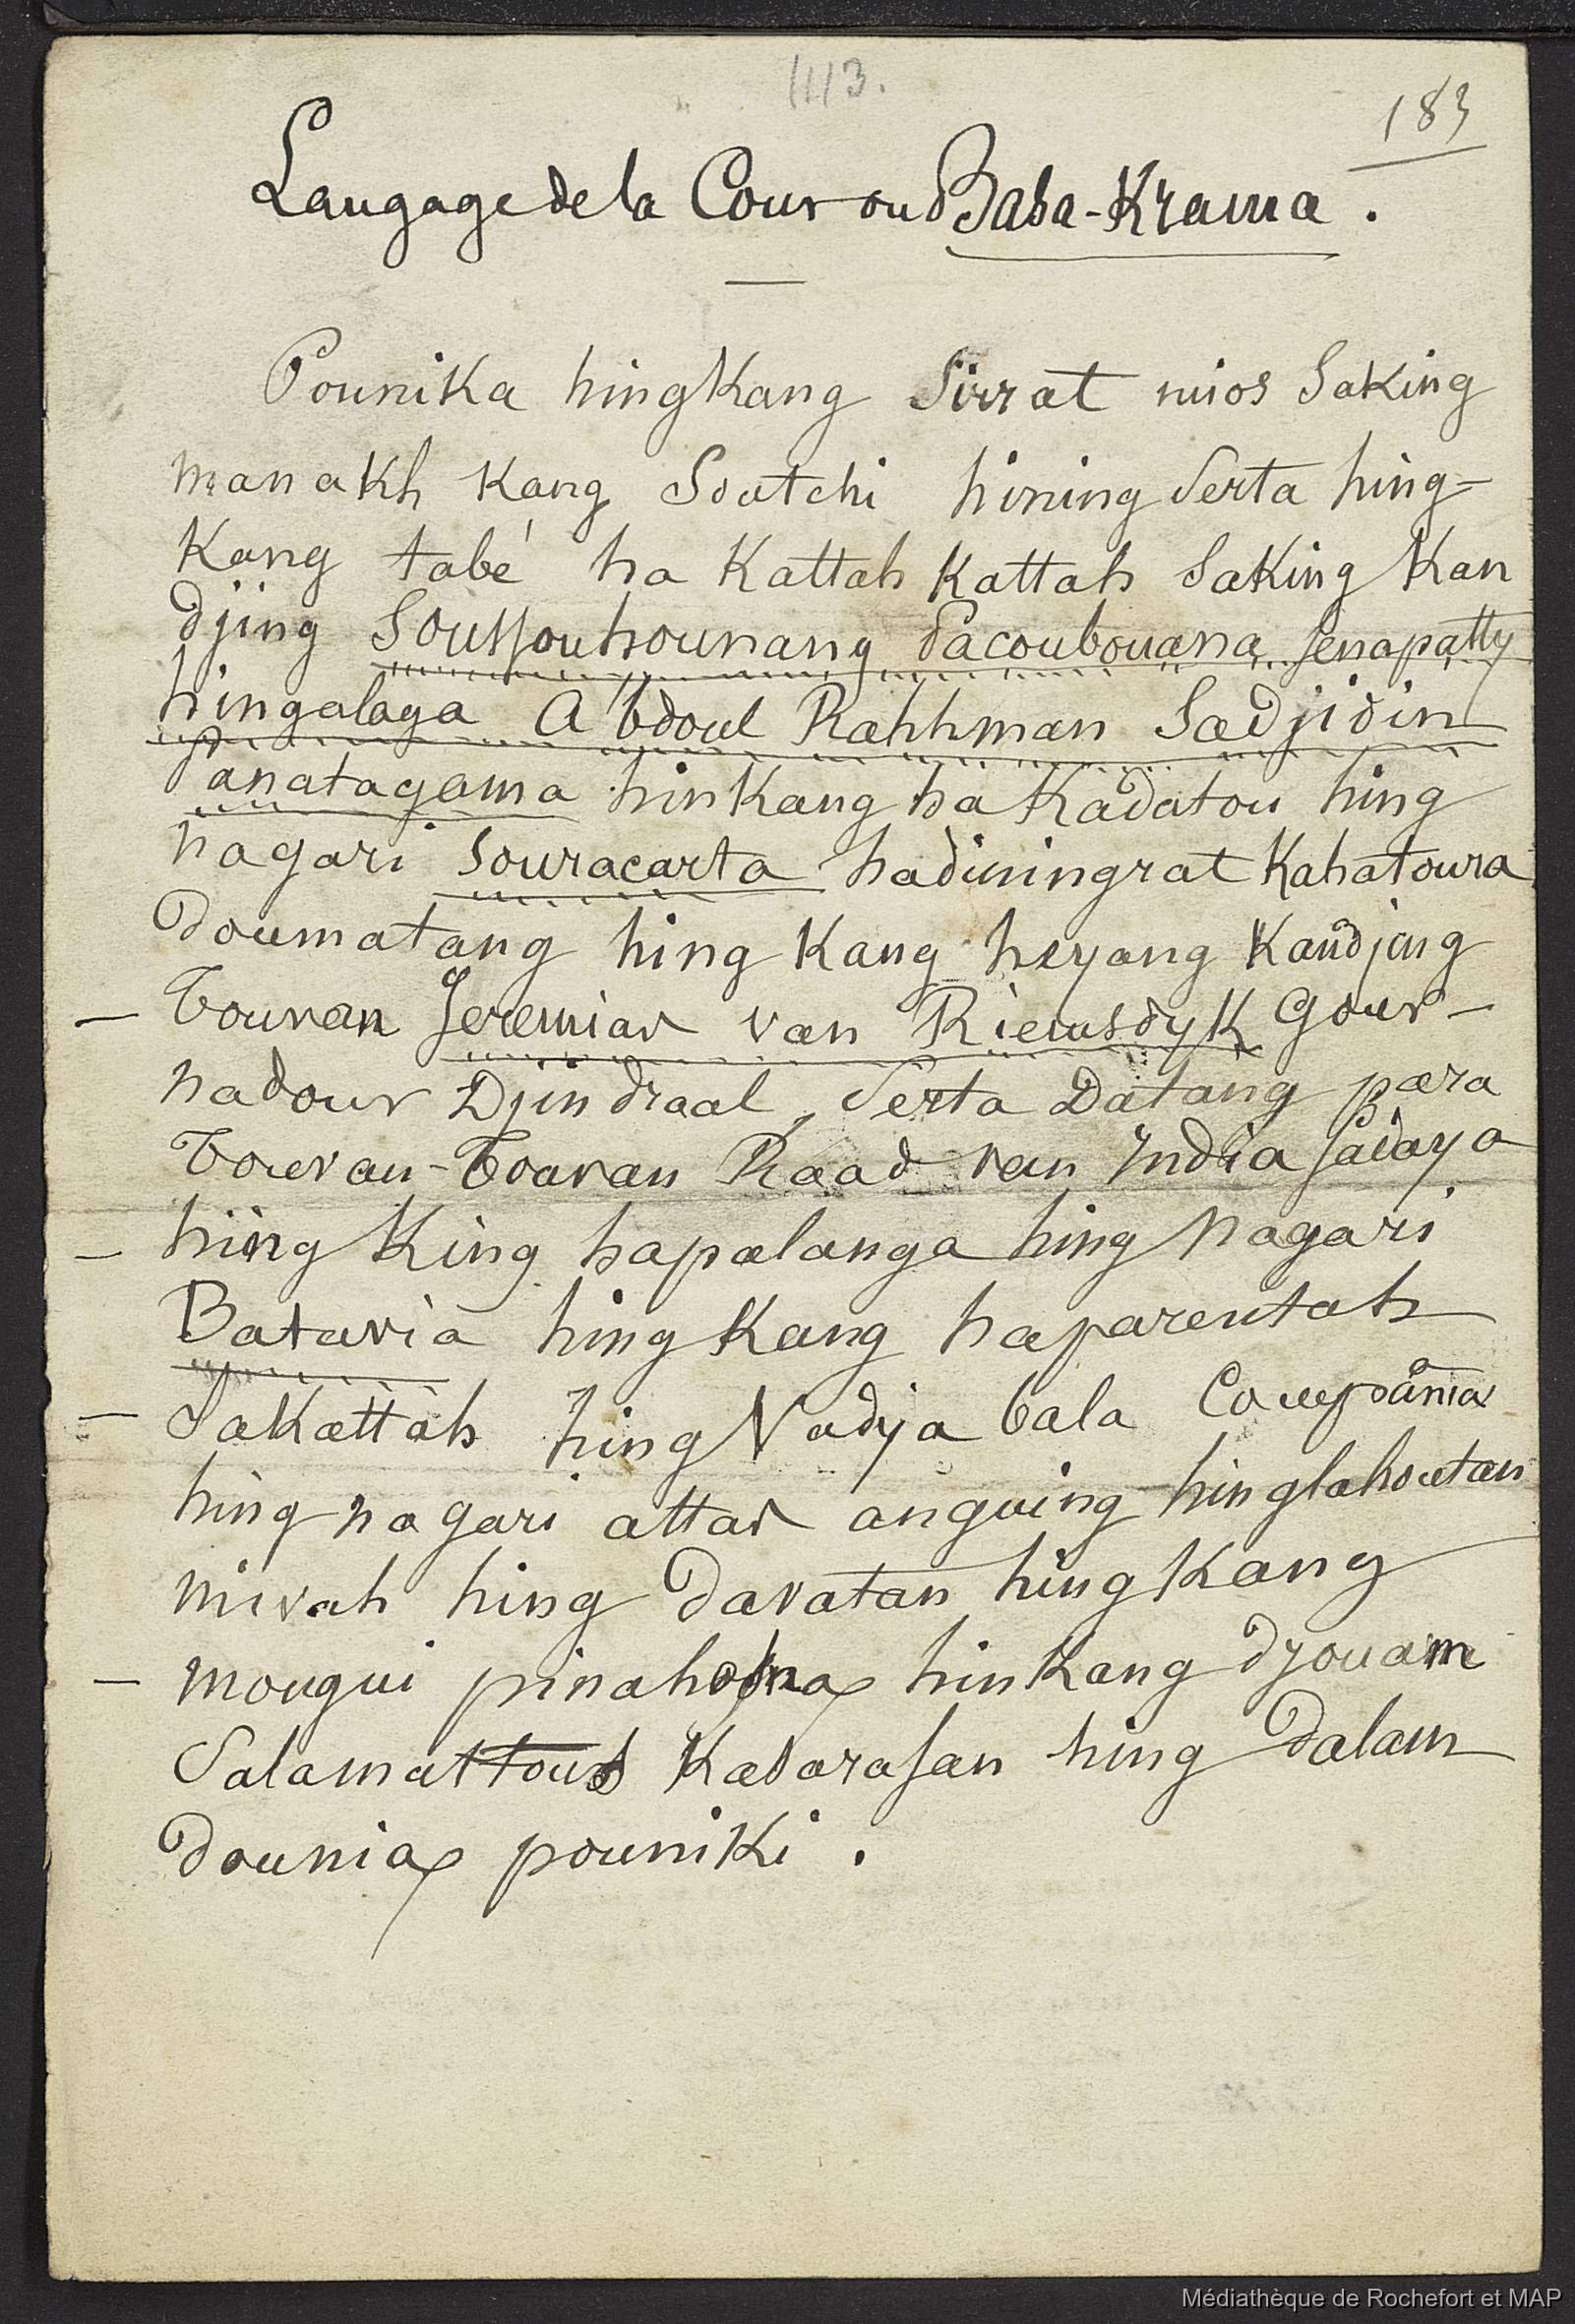 1113.
183
Langage de la Cour ou Basa-Krama.
Pounika hingkang Sirrat mios Saking
manakh kang Soutchi hining Serta hing-
kang tabé ha Kattah Kattah Saking Kan
djing Soussouhounang Pacoubouana Senapatty
hingalaga Abdoul Rahhman Sadjidin
Panatagama hinkang ha Kadatou hing
nagari Souracarta hadiningrat Kahatoura
doumatang hing Kang heyang Kandjing
— Touvan Jeremias van Riemsdyk Gour-
nadour Djindraal, Serta Datang para
Touvan-Touvan Raad van India Sadaya
— hing King hapalanga hing Nagari
Batavia hing Kang haparentah
— SaKattah hing Vadya bala Compania
hing nagari attas anguing hinglahoutan
mivah hing daratan hing Kang
— mougui pinahona hinKang dyouam
Salamattous Kabarasan hing Dalam
dounia pouniki.
Médiathèque de Rochefort et MAP